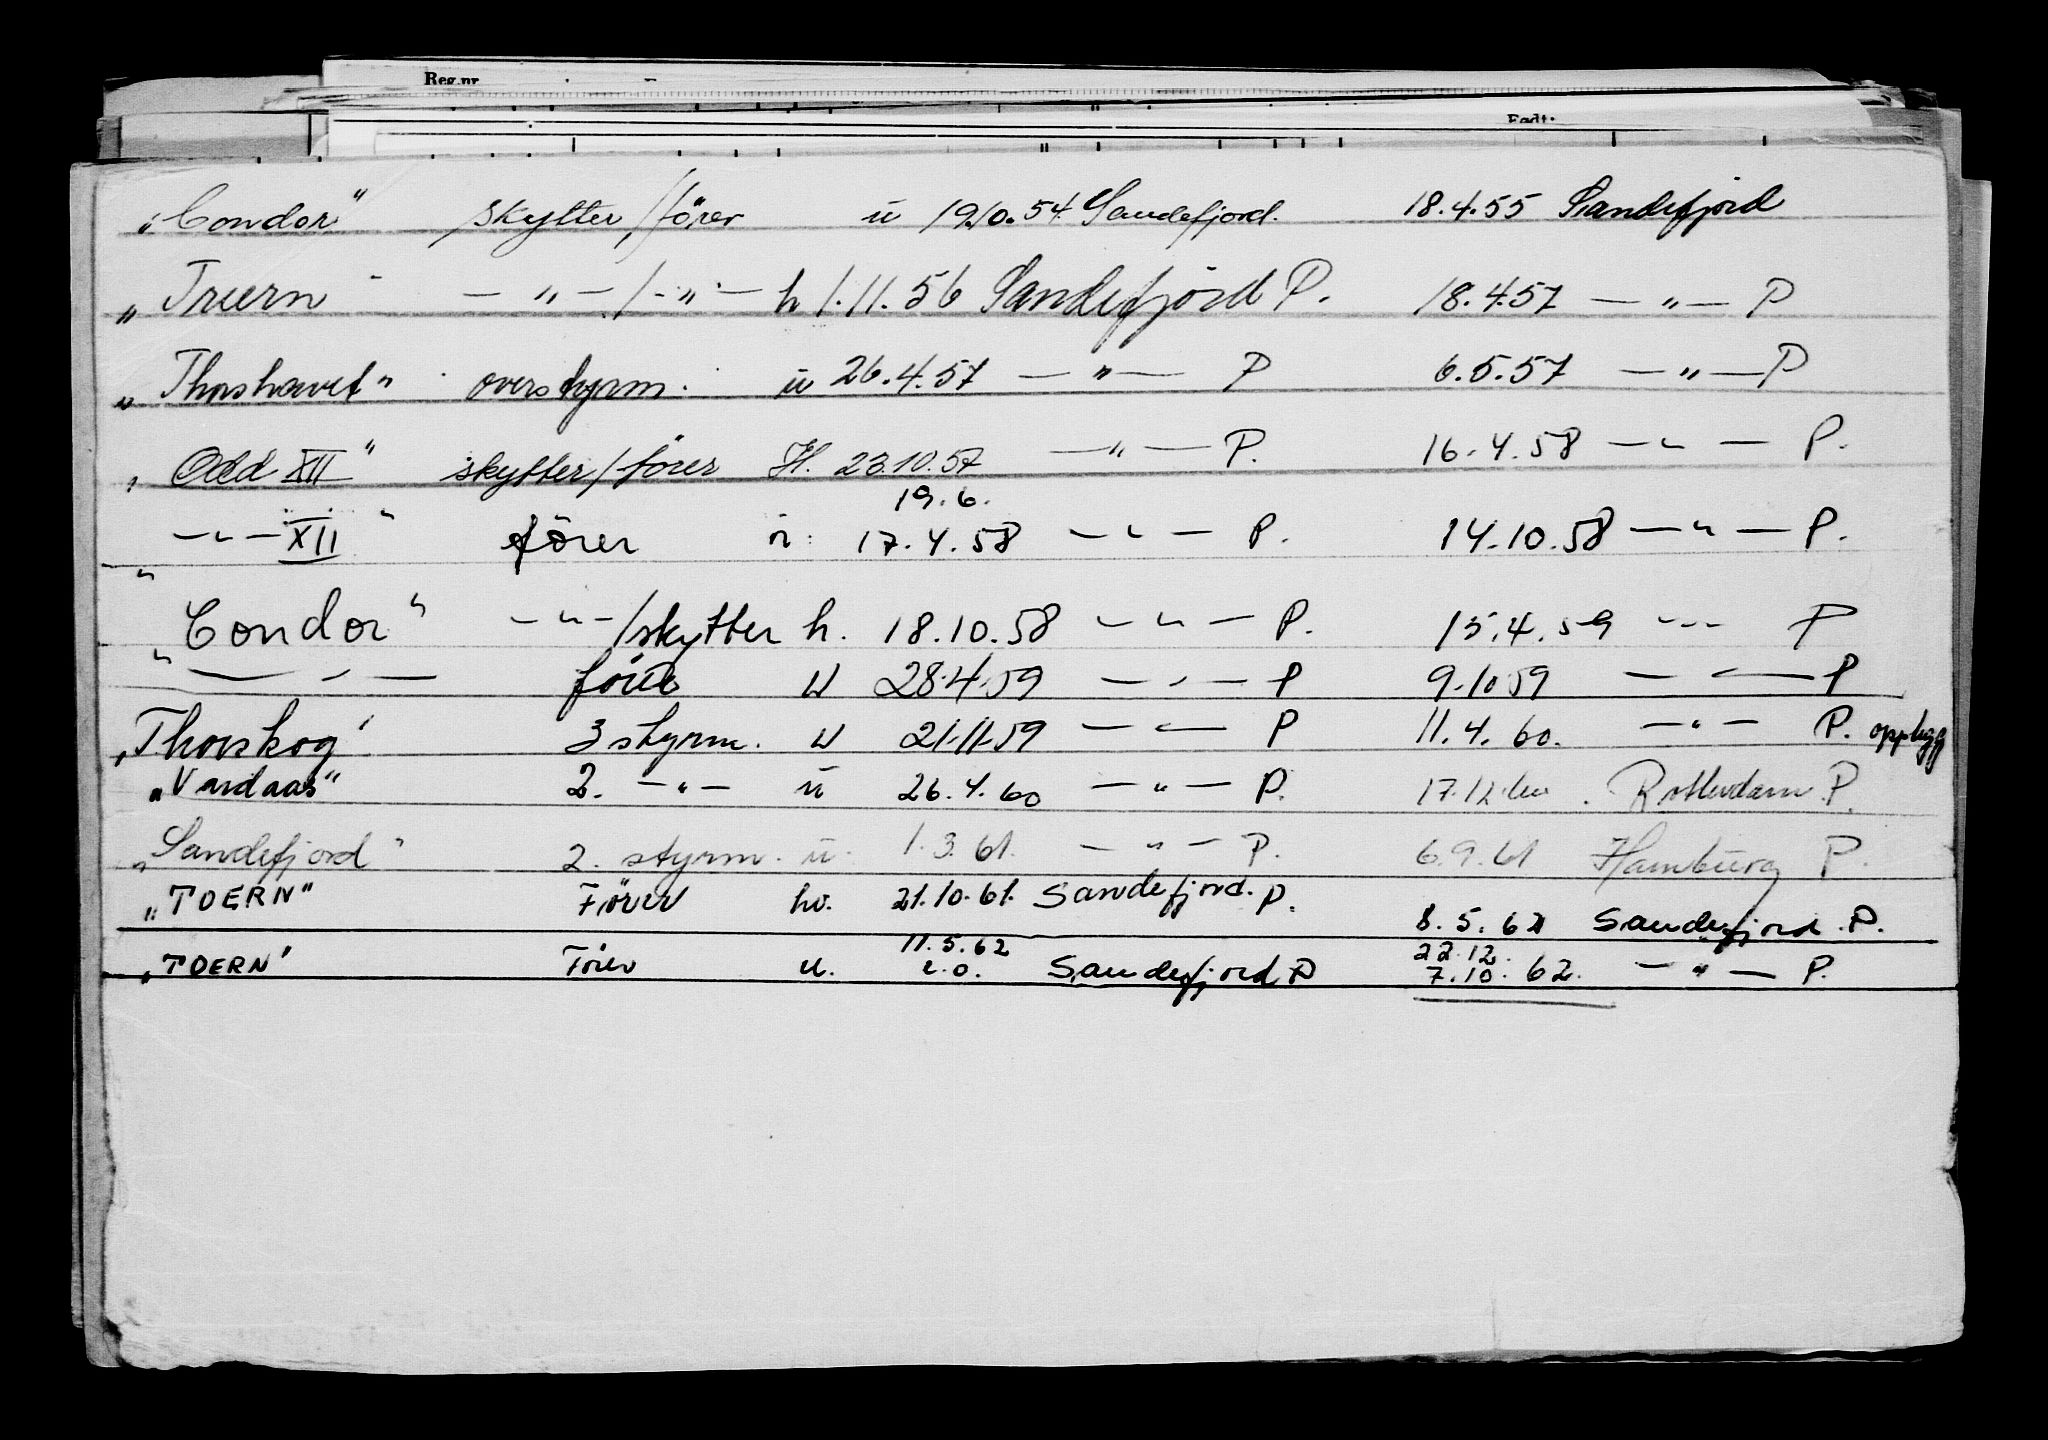 Reg.nr.
Født:
„Condor" skytter/fører u 19.10.54 Sandefjord. 18.4.55 Sandefjord
„Truern — " — / — " — h 1.11.56 Sandefjord P. 18.4.57 — " — P
„Thorshavet" overstyrm. u 26.4.57 — " — P 6.5.57 — " — P
„Odd XII" skytter/fører H. 23.10.57 — " — P. 16.4.58 — " — P.
19.6.
— " — XII" fører u: 17.4.58 — " — P. 14.10.58 — " — P.
„Condor" — " — /skytter h. 18.10.58 — " — P. 15.4.59 — " — P
„ — " — fører u 28.4.59 — " — P 9.10.59 — " — P
„Thorskog" 3 styrm. u 21.11.59 — " — P 11.4.60. — " — P. opplegg
„Vardaas" 2. — " — u 26.4.60 — " — P. 17.12.60. Rotterdam P.
„Sandefjord" 2. styrm. u. 1.3.61. — " — P. 6.9.61 Hamburg P.
„TOERN" Fører hv. 21.10.61. Sandefjord. P. 8.5.62 Sandefjord. P.
11.5.62 22.12.
„TOERN" Fører u. Sandefjord P 7.10.62. — " — P.